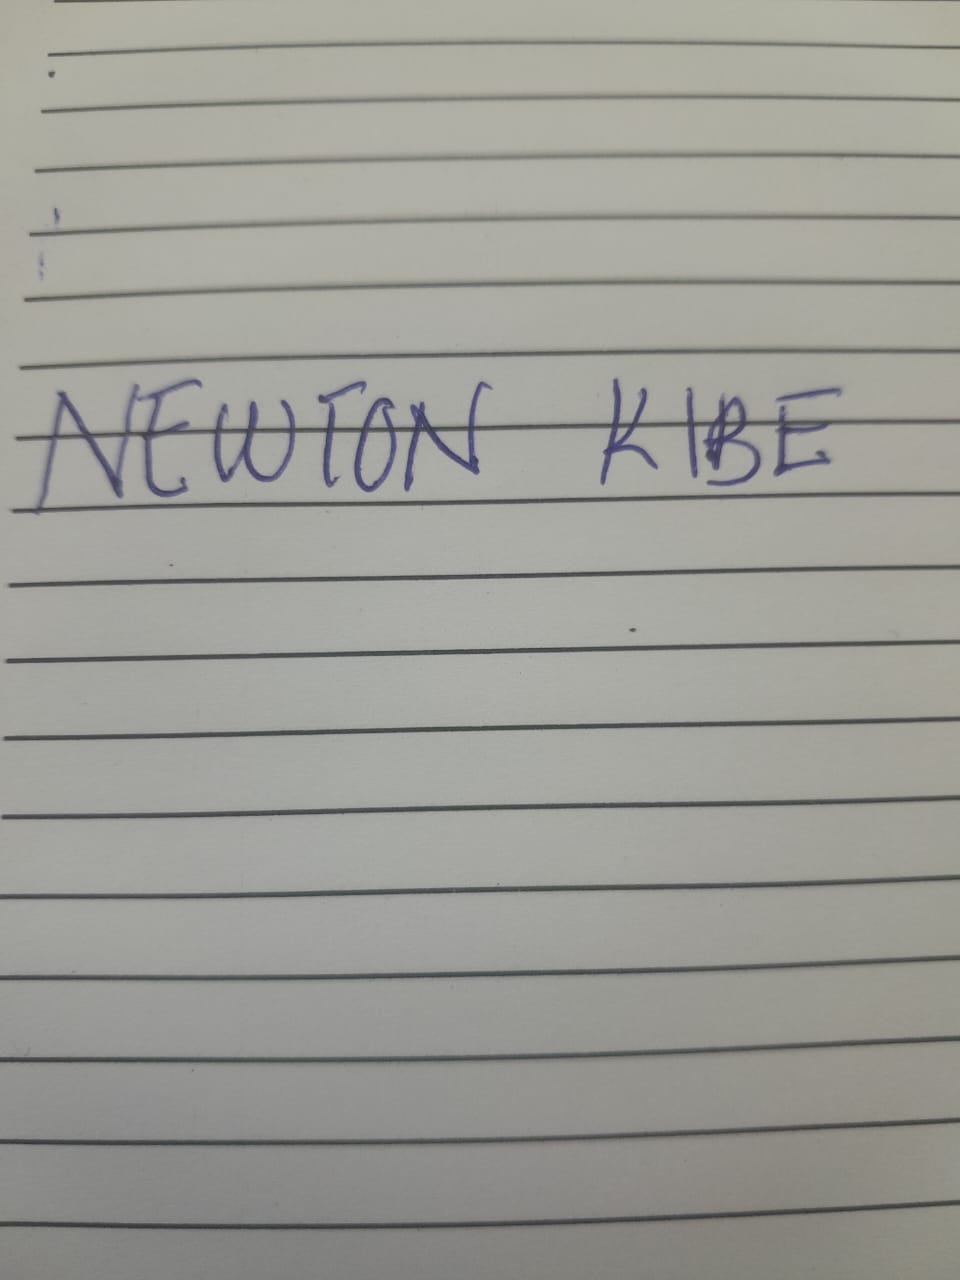 NEWTON KIBE